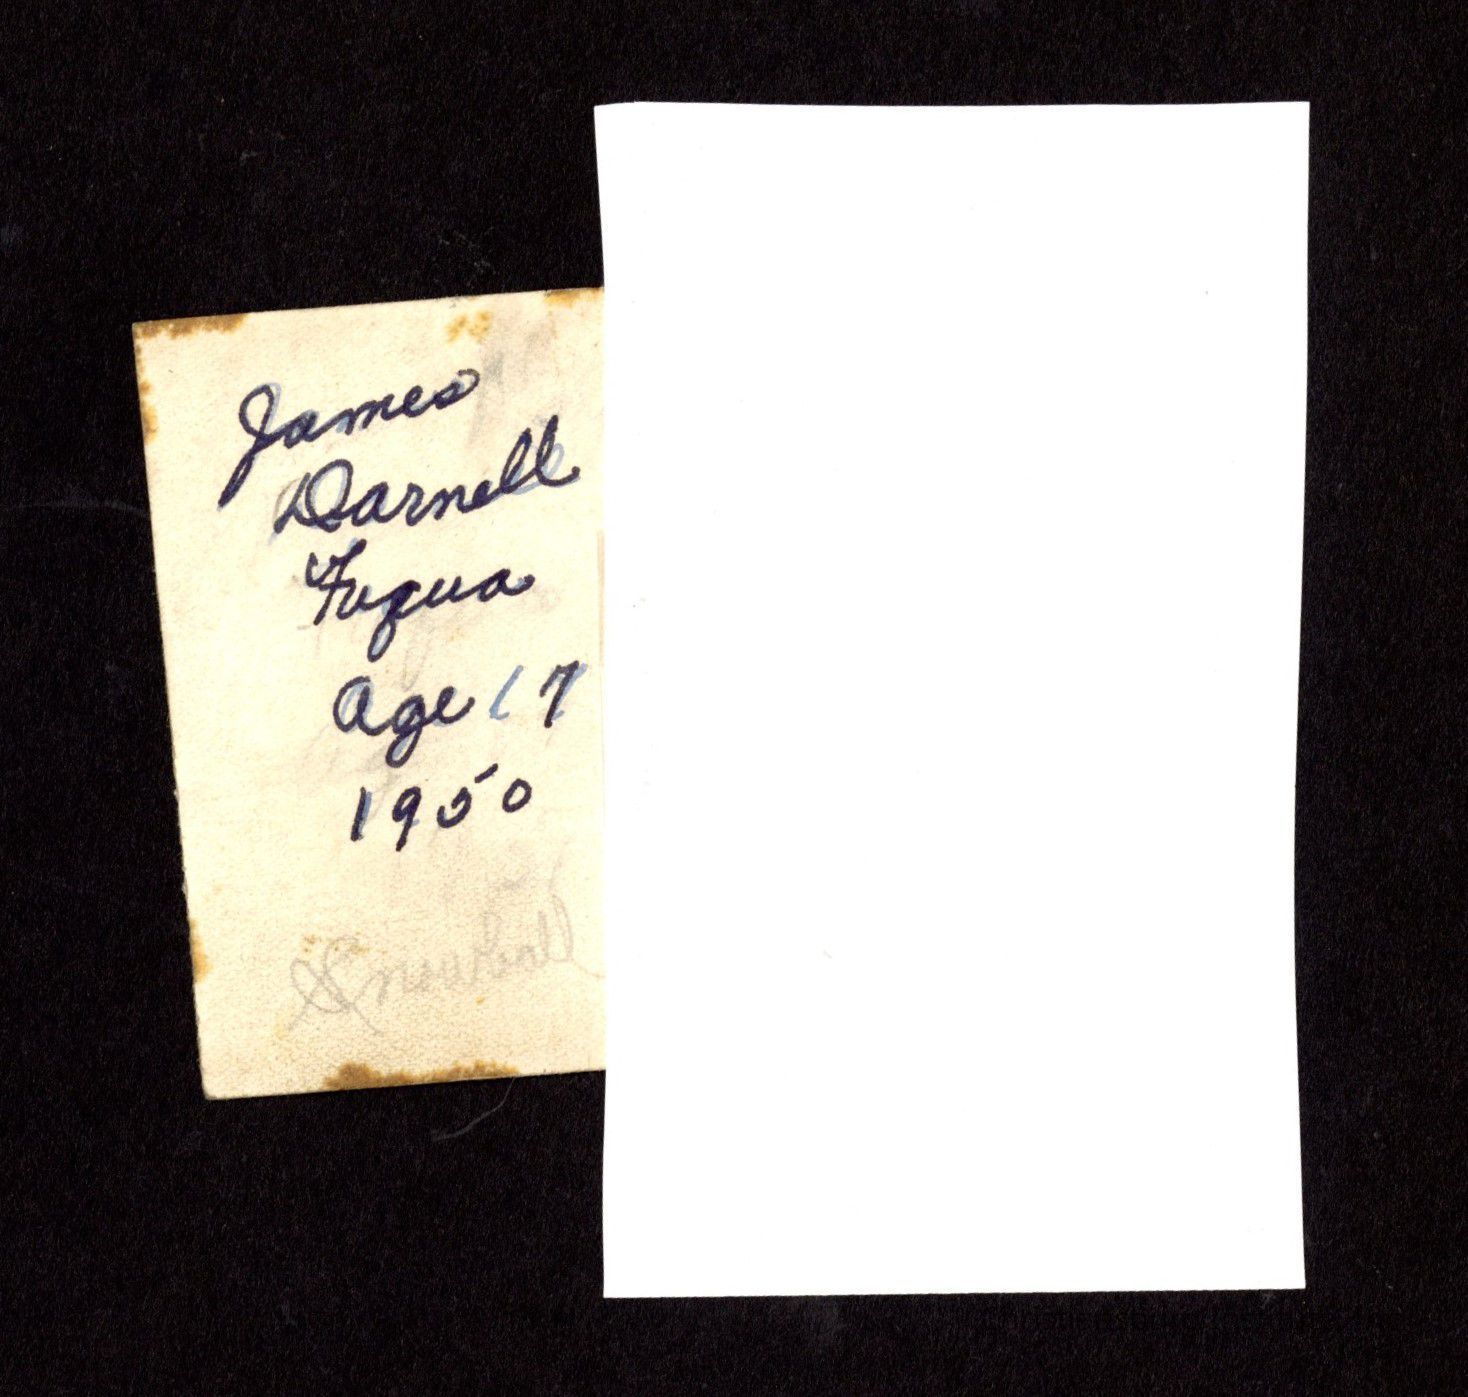 James
Darnell
Fuqua
Age 17
1950
Snowball